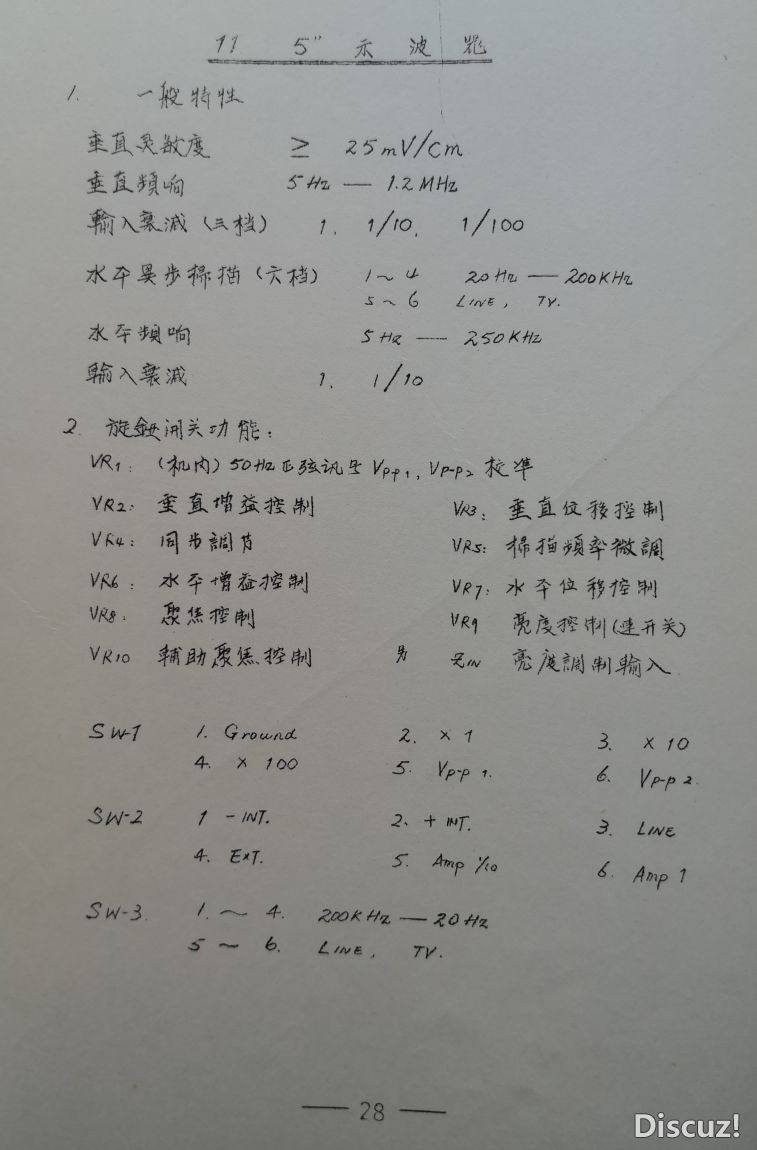 11 5" 示波器
1. 一般特性
垂直灵敏度 ≥ 25mV/cm
垂直頻响 5Hz — 1.2MHz
輸入衰減（三档） 1. 1/10. 1/100
水平异步掃描（六档） 1～4 20Hz — 200KHz
5～6 LINE, TV.
水平頻响 5Hz — 250KHz
輸入衰減 1. 1/10
2. 旋鈕開关功能：
VR1: （机內）50Hz正弦讯号 Vp-p1, Vp-p2 校準
VR2: 垂直增益控制 VR3: 垂直位移控制
VR4: 同步調节 VR5: 掃描頻率微調
VR6: 水平增益控制 VR7: 水平位移控制
VR8: 聚焦控制 VR9 亮度控制(連开关)
VR10 輔助聚焦控制 另 IN 亮度調制輸入
SW-1 1. Ground 2. ×1 3. ×10
4. ×100 5. Vp-p 1. 6. Vp-p 2.
SW-2 1 -INT. 2. +INT. 3. LINE
4. EXT. 5. Amp 1/10 6. Amp 1
SW-3. 1. ～ 4. 200KHz — 20Hz
5 ～ 6. LINE, TV.
— 28 —
Discuz!